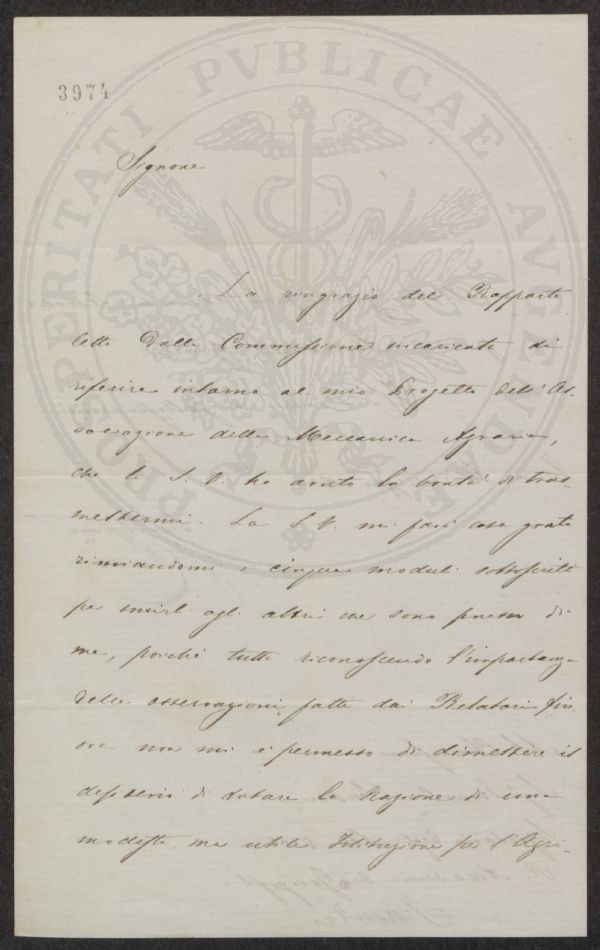 3974
PROSPERITATI PVBLICAE AVGENDAE
Signore
La ringrazio del Rapporto
letto dalla Commissione incaricata di
riferire intorno al mio Progetto dell'As-
sociazione della Meccanica Agraria,
che la S. V. ha avuto la bontà di tras-
mettermi. La S. V. mi farà cosa grata
rinviandomi i cinque moduli sottoscritti
per unirli agli altri che sono presso di
me, perché tutti riconoscendo l'importanza
delle osservazioni fatte dai Relatori fin-
ora non mi è permesso di dimettere il
desiderio di dotare la Nazione di una
modesta, ma utile Istituzione per l'Agri-